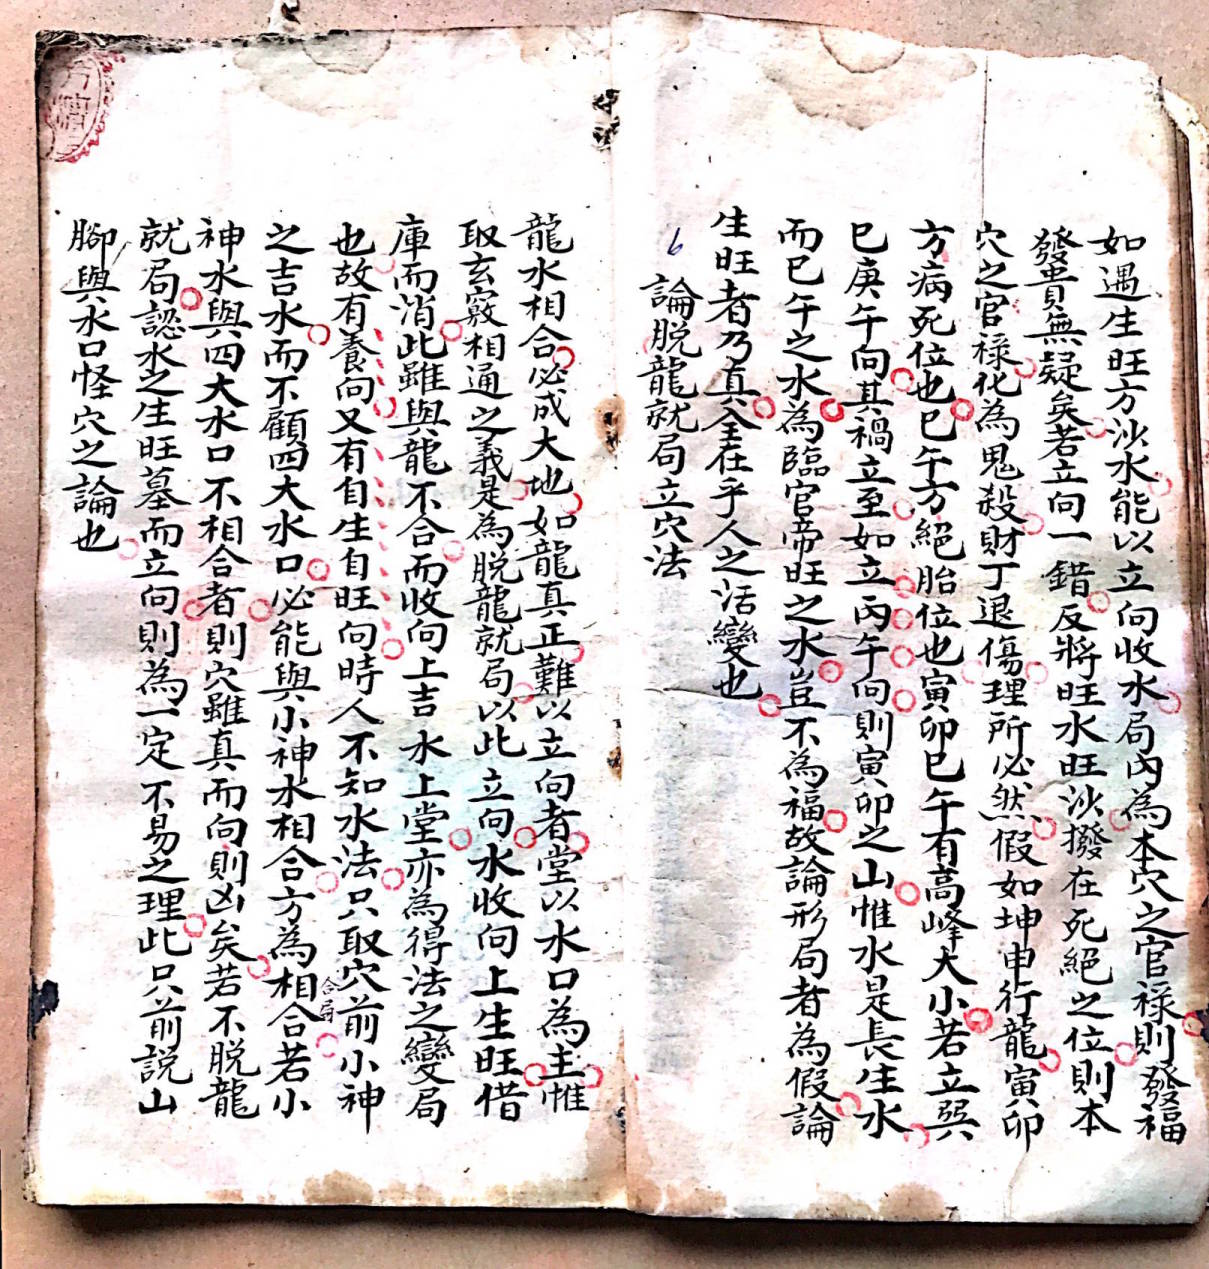 如遇生旺方沙水能以立向收水局內為本穴之官祿則發福
發貴無疑矣若立向一錯反將旺水旺沙撥在死絕之位則本
穴之官祿化為鬼殺財丁退傷理所必然假如坤申行龍寅卯
方病死位也巳午方絕胎位也寅卯巳午有高峰大小若立巽
巳庚午向其禍立至如立丙午向則寅卯之山惟水是長生水
而巳午之水為臨官帝旺之水豈不為福故論形局者為假論
生旺者乃真全在乎人之活變也
6 論脱龍就局立穴法
龍水相合必成大地如龍真正難以立向者堂以水口為主惟
取玄竅相通之義是為脱龍就局以此立向水收向上生旺借
庫而消此雖與龍不合而收向上吉水上堂亦為得法之變局
也故有養向又有自生自旺向時人不知水法只取穴前小神
之吉水而不顧四大水口必能與小神水相合方為相合合局若小
神水與四大水口不相合者則穴雖真而向則凶矣若不脱龍
就局認水之生旺墓而立向則為一定不易之理此只前説山
腳與水口怪穴之論也